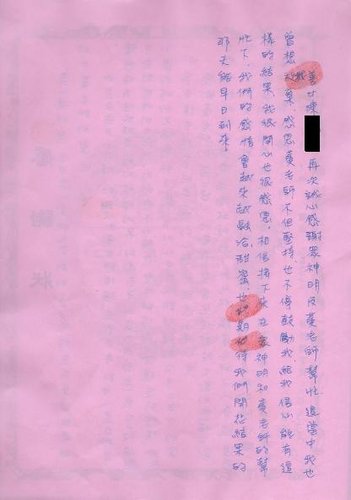 善女陳 再次誠心感謝眾神明及黃老師幫忙, 這當中我也
曾想放棄, 感恩黃老師不但堅持, 也不停鼓勵我, 給我信心, 能有這
樣的結果, 我很開心也很感恩, 相信接下來在眾神明和黃老師的幫
忙下, 我們的感情會越來越融洽甜蜜, 也期待我們開花結果的
那天能早日到來!